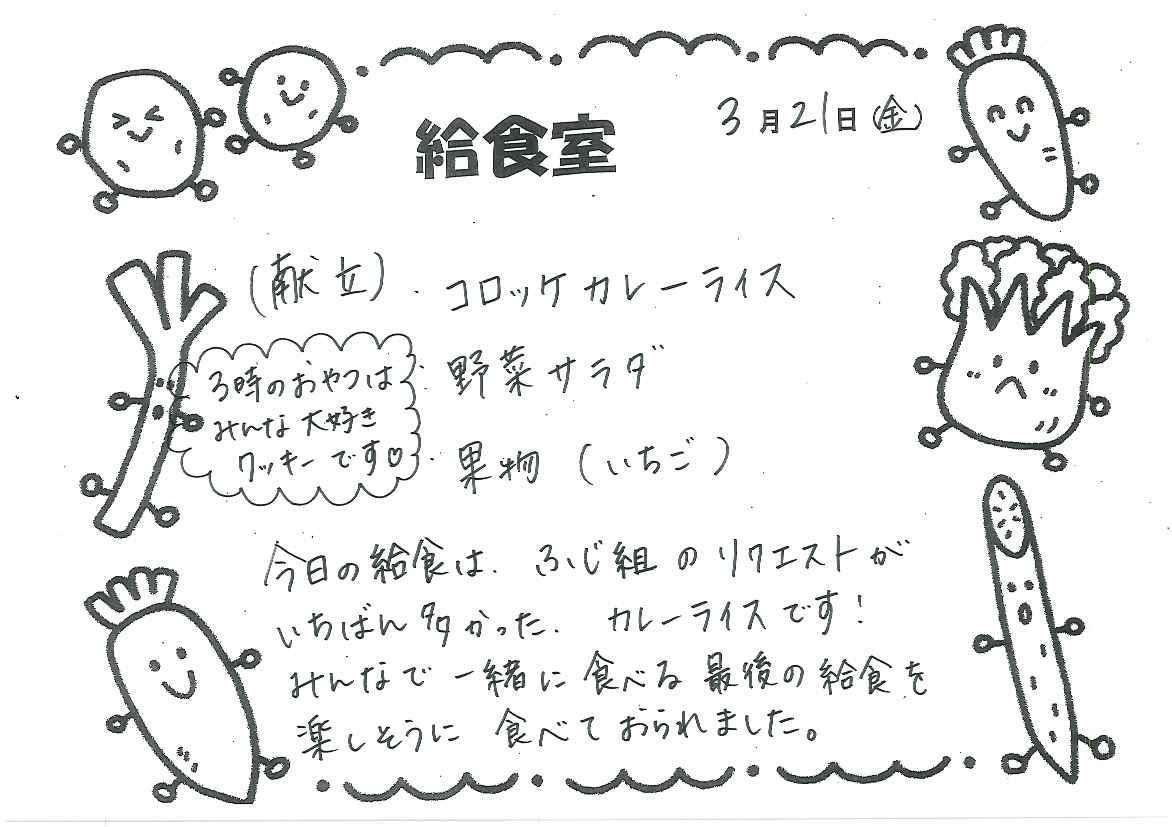 給食室
3月21日(金)
(献立)・コロッケカレーライス
・野菜サラダ
・果物(いちご)
3時のおやつは
みんな大好き
クッキーです♡
今日の給食は、ふじ組のリクエストが
いちばん多かった、カレーライスです!
みんなで一緒に食べる最後の給食を
楽しそうに食べておられました。